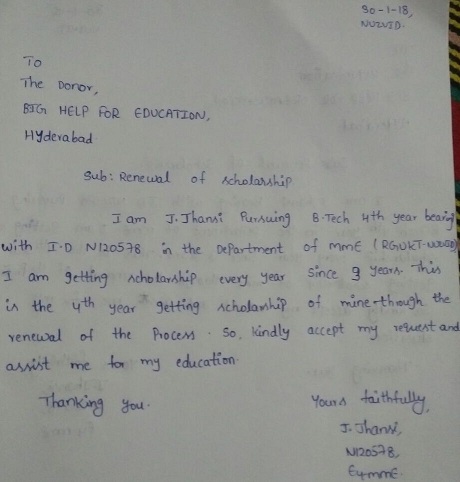 30-1-18,
NUZVID.
To
The Donor,
BIG HELP FOR EDUCATION,
Hyderabad
Sub: Renewal of scholarship
I am J. Jhansi Pursuing B.Tech 4th year bearing
with I.D N120578 in the Department of mmE (RGUKT-NUZVID)
I am getting scholarship every year since 9 years. This
is the 4th year getting scholarship of mine through the
renewal of the Process. So, kindly accept my request and
assist me for my education.
Thanking you.
Yours faithfully,
J. Jhansi,
N120578,
E4-mmE.